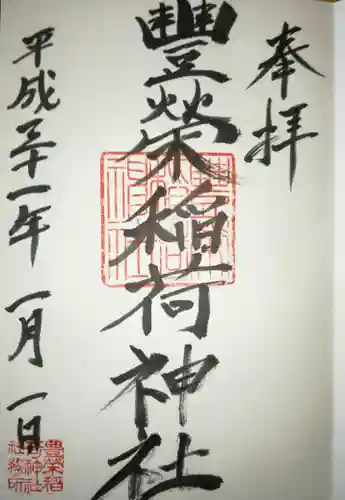 奉拝
豐榮稲荷神社
平成三十一年 一月 一日
豊榮稲荷神社社務所